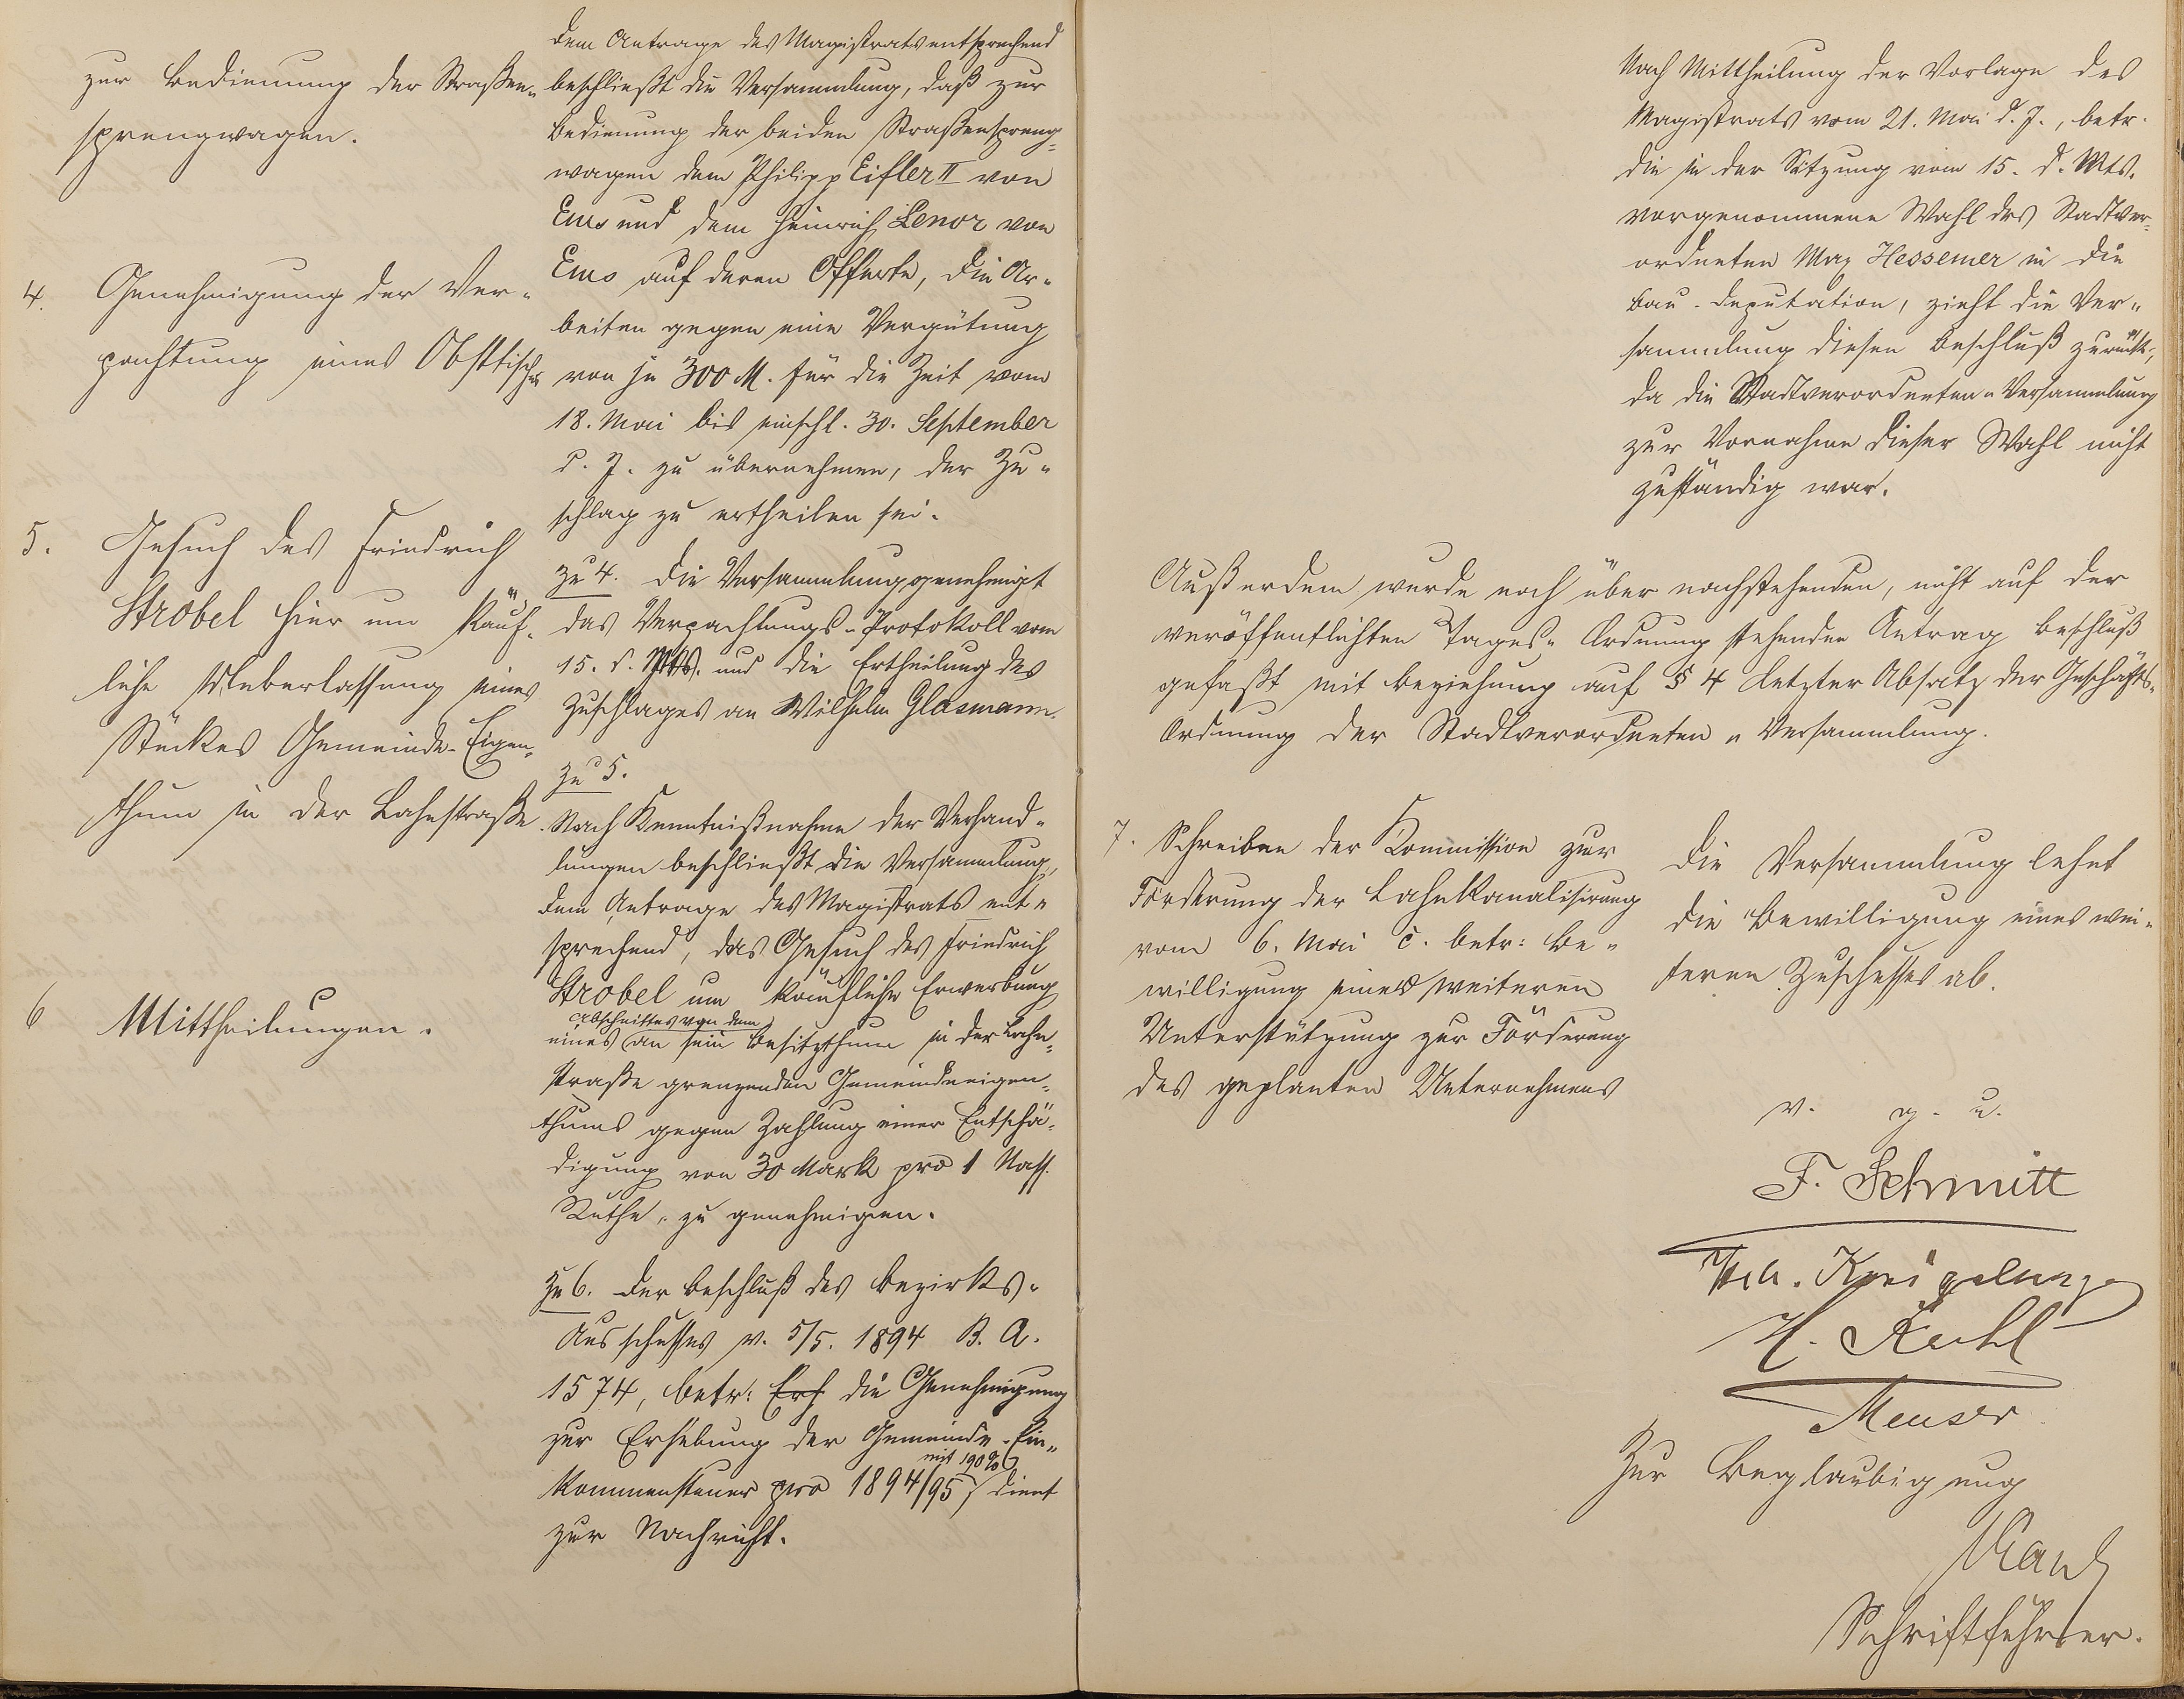 zur Bedienung der Straßen-
sprengwagen.
4. Genehmigung der Ver-
pachtung eines Obsttisches
5. Gesuch des Friedrich
Strobel hier um käuf-
liche Ueberlassung eines
Stückes Gemeinde-Eigen-
thum in der Lahnstraße.
6 Mittheilungen.
dem Antrage des Magistrats entsprechend
beschließt die Versammlung, daß zur
Bedienung der beiden Straßenspreng-
wagen dem Philipp Eifler II von
Ems und dem Heinrich Lenoz von
Ems auf deren Offerte, die Ar-
beiten gegen eine Vergütung
von je 300 M. für die Zeit vom
18. Mai bis einschl. 30. September
d. J. zu übernehmen, der Zu-
schlag zu ertheilen sei.
zu 4. Die Versammlung genehmigt
das Verpachtungs-Protokoll vom
15. d. Mts. und die Ertheilung des
Zuschlages an Wilhelm Glasmann.
zu 5.
Nach Kenntnißnahme der Verhand-
lungen beschließt die Versammlung,
dem Antrage des Magistrats ent-
sprechend, das Gesuch des Friedrich
Strobel um käufliche Erwerbung
Abschnittes von dem
eines an sein Besitzthum in der Lahn-
straße grenzenden Gemeindeeigen-
thums gegen Zahlung einer Entschä-
digung von 30 Mark pro 1 Nass.
Ruthe, zu genehmigen.
zu 6. Der Beschluß des Bezirks-
Ausschusses v. 5/5. 1894 B. A.
1574, betr: Erh die Genehmigung
zur Erhebung der Gemeinde-Ein-
mit 190%
kommensteuer pro 1894/95 dient
zur Nachricht.
Nach Mittheilung der Vorlage des
Magistrats vom 21. Mai d. J., betr.
die in der Sitzung vom 15. d. Mts.
vorgenommene Wahl des Stadtver-
ordneten Max Hessemer in die
Bau-Deputation, zieht die Ver-
sammlung diesen Beschluß zurück,
da die Stadtverordneten-Versammlung
zur Vornahme dieser Wahl nicht
zuständig war.
Außerdem wurde noch über nachstehenden, nicht auf der
veröffentlichten Tages-Ordnung stehenden Antrag Beschluß
gefaßt mit Beziehung auf § 4 letzter Absatz der Geschäfts-
Ordnung der Stadtverordneten-Versammlung.
7. Schreiben der Kommission zur
Förderung der Lahnkanalisirung
vom 6. Mai c. betr: Be-
willigung einer weiteren
Unterstützung zur Förderung
des geplanten Unternehmens
Die Versammlung lehnt
die Bewilligung eines wei-
teren Zuschusses ab.
v. g. u.
F. Schmitt
H.
Meuser
Zur Beglaubigung
Schriftführer.